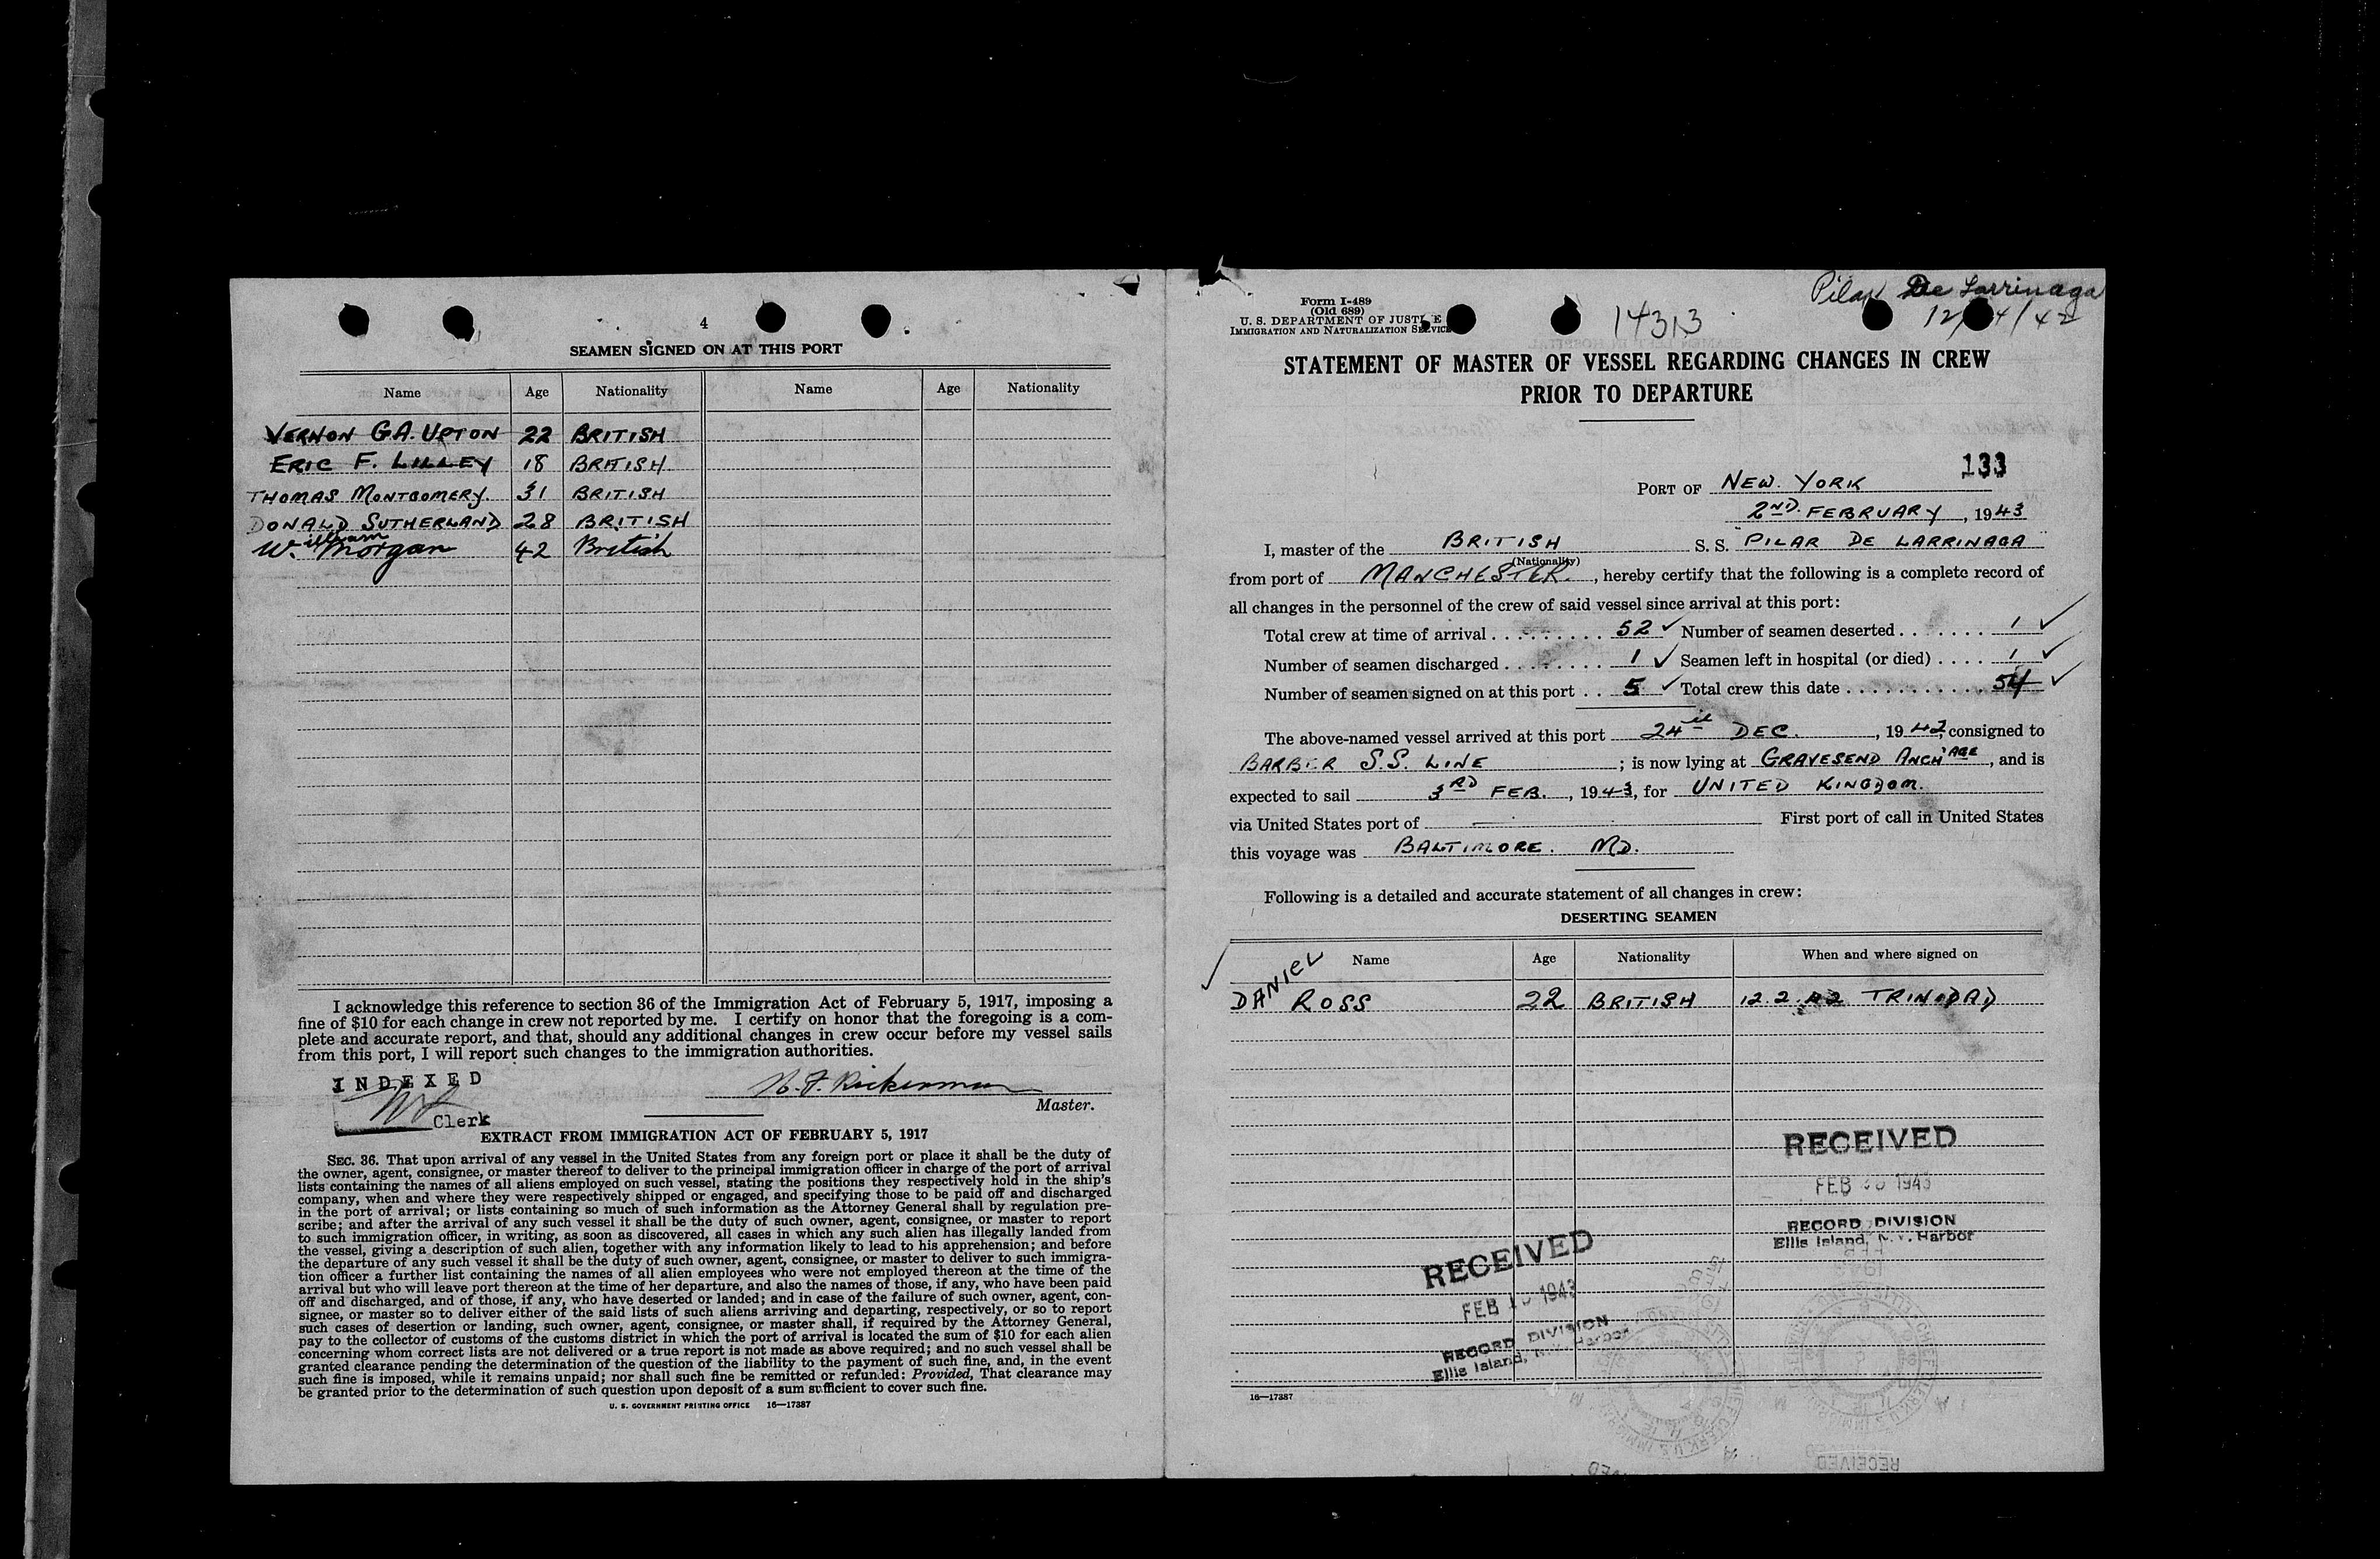 4
SEAMEN SIGNED ON AT THIS PORT
Name Age Nationality Name Age Nationality
VERNON G.A. UPTON 22 BRITISH
ERIC F. LILLEY 18 BRITISH
THOMAS MONTGOMERY. 31 BRITISH
DONALD SUTHERLAND 28 BRITISH
William Morgan 42 British
I acknowledge this reference to section 36 of the Immigration Act of February 5, 1917, imposing a
fine of $10 for each change in crew not reported by me. I certify on honor that the foregoing is a com-
plete and accurate report, and that, should any additional changes in crew occur before my vessel sails
from this port, I will report such changes to the immigration authorities.
INDEXED
Clerk
Master.
EXTRACT FROM IMMIGRATION ACT OF FEBRUARY 5, 1917
SEC. 36. That upon arrival of any vessel in the United States from any foreign port or place it shall be the duty of
the owner, agent, consignee, or master thereof to deliver to the principal immigration officer in charge of the port of arrival
lists containing the names of all aliens employed on such vessel, stating the positions they respectively hold in the ship's
company, when and where they were respectively shipped or engaged, and specifying those to be paid off and discharged
in the port of arrival; or lists containing so much of such information as the Attorney General shall by regulation pre-
scribe; and after the arrival of any such vessel it shall be the duty of such owner, agent, consignee, or master to report
to such immigration officer, in writing, as soon as discovered, all cases in which any such alien has illegally landed from
the vessel, giving a description of such alien, together with any information likely to lead to his apprehension; and before
the departure of any such vessel it shall be the duty of such owner, agent, consignee, or master to deliver to such immigra-
tion officer a further list containing the names of all alien employees who were not employed thereon at the time of the
arrival but who will leave port thereon at the time of her departure, and also the names of those, if any, who have been paid
off and discharged, and of those, if any, who have deserted or landed; and in case of the failure of such owner, agent, con-
signee, or master so to deliver either of the said lists of such aliens arriving and departing, respectively, or so to report
such cases of desertion or landing, such owner, agent, consignee, or master shall, if required by the Attorney General,
pay to the collector of customs of the customs district in which the port of arrival is located the sum of $10 for each alien
concerning whom correct lists are not delivered or a true report is not made as above required; and no such vessel shall be
granted clearance pending the determination of the question of the liability to the payment of such fine, and, in the event
such fine is imposed, while it remains unpaid; nor shall such fine be remitted or refunded: Provided, That clearance may
be granted prior to the determination of such question upon deposit of a sum sufficient to cover such fine.
U. S. GOVERNMENT PRINTING OFFICE 16—17387
Form I-489
(Old 689)
U. S. DEPARTMENT OF JUSTICE
IMMIGRATION AND NATURALIZATION SERVICE
14313
Pilar De Larrinaga
12/24/42
STATEMENT OF MASTER OF VESSEL REGARDING CHANGES IN CREW
PRIOR TO DEPARTURE
133
PORT OF NEW YORK
2ND. FEBRUARY, 1943
I, master of the BRITISH S. S. "PILAR DE LARRINAGA"
(Nationality)
from port of MANCHESTER., hereby certify that the following is a complete record of
all changes in the personnel of the crew of said vessel since arrival at this port:
Total crew at time of arrival 52 ✓ Number of seamen deserted 1 ✓
Number of seamen discharged 1 ✓ Seamen left in hospital (or died) 1 ✓
Number of seamen signed on at this port 5 ✓ Total crew this date 54 ✓
The above-named vessel arrived at this port 24th DEC., 1942, consigned to
BARBER S.S. LINE; is now lying at GRAVESEND ANCH'AGE, and is
expected to sail 3RD FEB., 1943, for UNITED KINGDOM.
via United States port of — First port of call in United States
this voyage was BALTIMORE. MD.
Following is a detailed and accurate statement of all changes in crew:
DESERTING SEAMEN
Name Age Nationality When and where signed on
✓ DANIEL ROSS 22 BRITISH 12.2.42 TRINIDAD
RECEIVED
FEB 1943
RECORD DIVISION
Ellis Island, N. Y. Harbor
RECEIVED
FEB 1943
RECORD DIVISION
Ellis Island, N. Y. Harbor
16—17387
RECEIVED